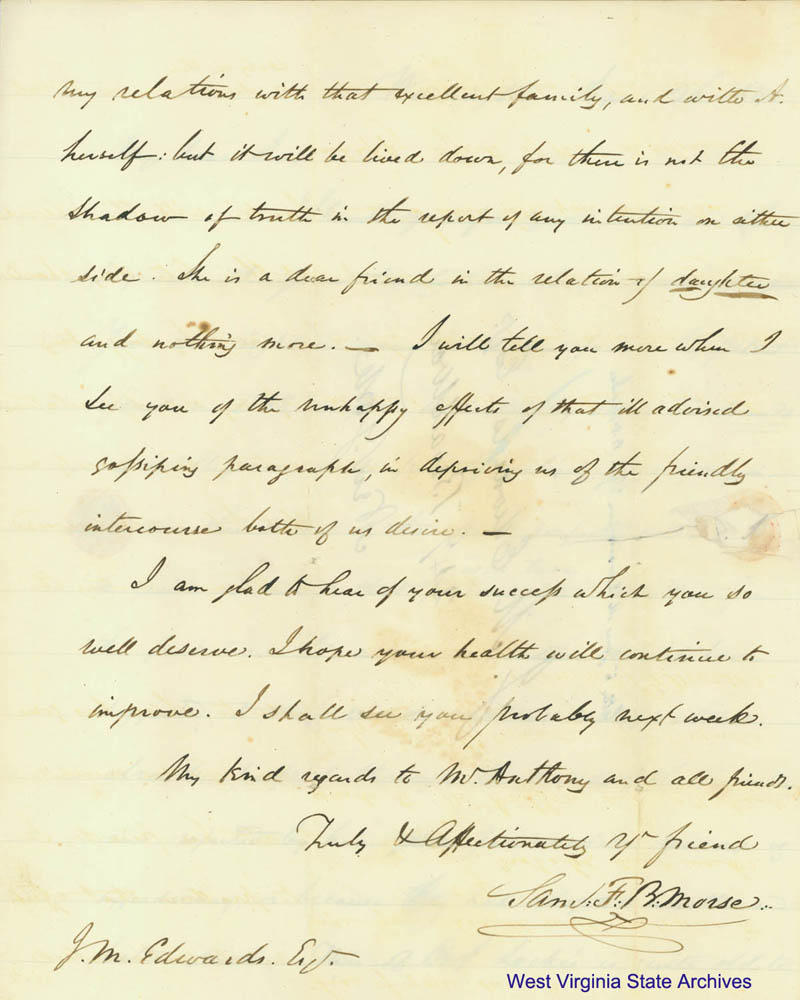 my relations with that excellent family, and with A.
herself: but it will be lived down, for there is not the
shadow of truth in the report of any intention on either
side. She is a dear friend in the relation of daughter
and nothing more. — I will tell you more when I
see you of the unhappy effects of that ill advised
gossiping paragraph, in depriving us of the friendly
intercourse both of us desire. —
I am glad to hear of your success which you so
well deserve. I hope your health will continue to
improve. I shall see you probably next week.
My kind regards to Mr. Anthony and all friends.
Truly & Affectionately Yr friend
Saml. F. B. Morse.
J. M. Edwards. Esqr.
West Virginia State Archives